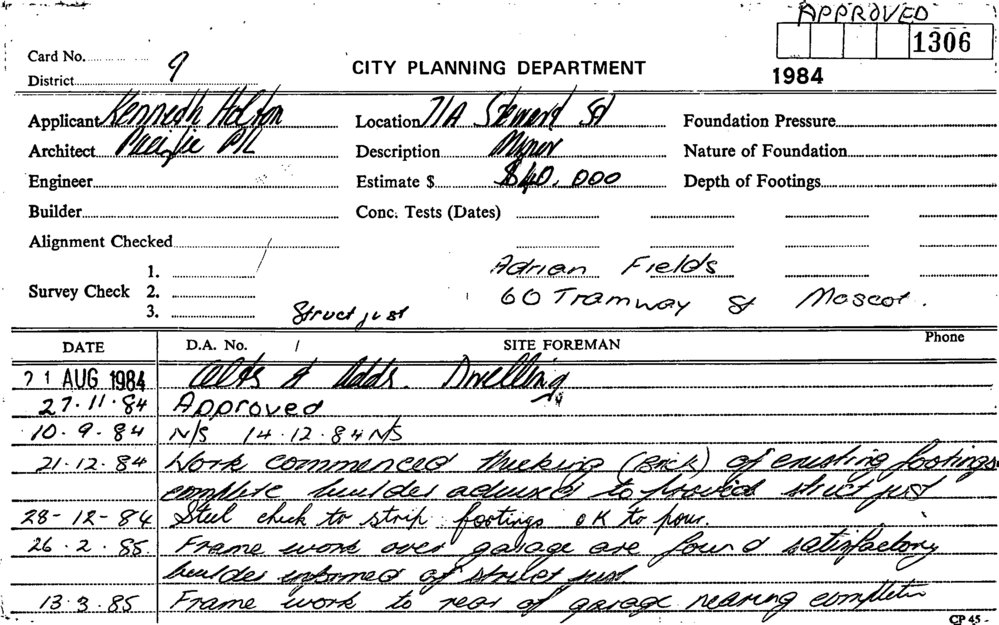 APPROVED
1306
1984
Card No.
District 9
CITY PLANNING DEPARTMENT
Applicant Kenneth Location 71A Steward St Foundation Pressure
Architect Pacific P/L Description Minor Nature of Foundation
Engineer Estimate $ $40,000 Depth of Footings
Builder Conc. Tests (Dates)
Alignment Checked
Adrian Fields
1.
Survey Check 2. 60 Tramway St Mascot.
3. Struct just
DATE D.A. No. / SITE FOREMAN Phone
21 AUG 1984 Alts & Adds. Dwelling
27.11.84 Approved
10.9.84 N/S 14.12.84 N/S
21.12.84 Work commenced (Brick) of existing footings
complete builder advised to provide struct just
28-12-84 Steel check to strip footings OK to pour.
26.2.85 Frame work over garage are found satisfactory
builder informed of struct just
13.3.85 Frame work to rear of garage nearing completion
CP 45 -